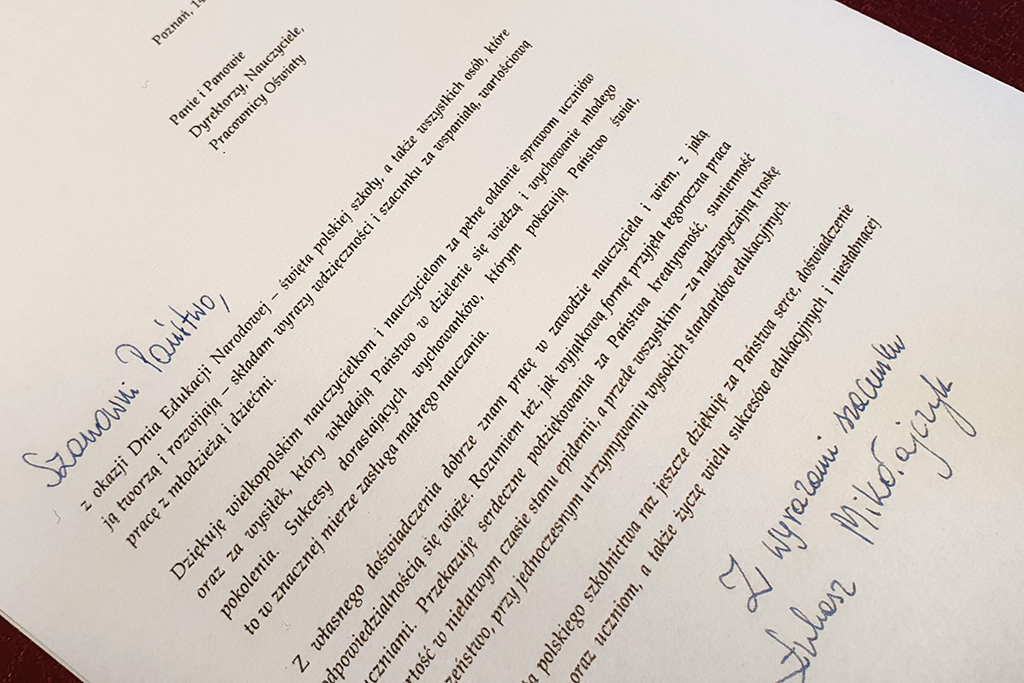 Poznań,
Panie i Panowie
Dyrektorzy, Nauczyciele,
Pracownicy Oświaty
Szanowni Państwo,
z okazji Dnia Edukacji Narodowej – święta polskiej szkoły, a także wszystkich osób, które
ją tworzą i rozwijają – składam wyrazy wdzięczności i szacunku za wspaniałą, wartościową
pracę z młodzieżą i dziećmi.
Dziękuję wielkopolskim nauczycielkom i nauczycielom za pełne oddanie sprawom uczniów
oraz za wysiłek, który wkładają Państwo w dzielenie się wiedzą i wychowanie młodego
pokolenia. Sukcesy dorastających wychowanków, którym pokazują Państwo świat,
to w znacznej mierze zasługa mądrego nauczania.
Z własnego doświadczenia dobrze znam pracę w zawodzie nauczyciela i wiem, z jaką
odpowiedzialnością się wiąże. Rozumiem też, jak wyjątkową formę przyjęła tegoroczna praca
uczniami. Przekazuję serdeczne podziękowania za Państwa kreatywność, sumienność
w niełatwym czasie stanu epidemii, a przede wszystkim – za nadzwyczajną troskę
przy jednoczesnym utrzymywaniu wysokich standardów edukacyjnych.
polskiego szkolnictwa raz jeszcze dziękuję za Państwa serce, doświadczenie
oraz uczniom, a także życzę wielu sukcesów edukacyjnych i niesłabnącej
Z wyrazami szacunku
Łukasz Mikołajczyk